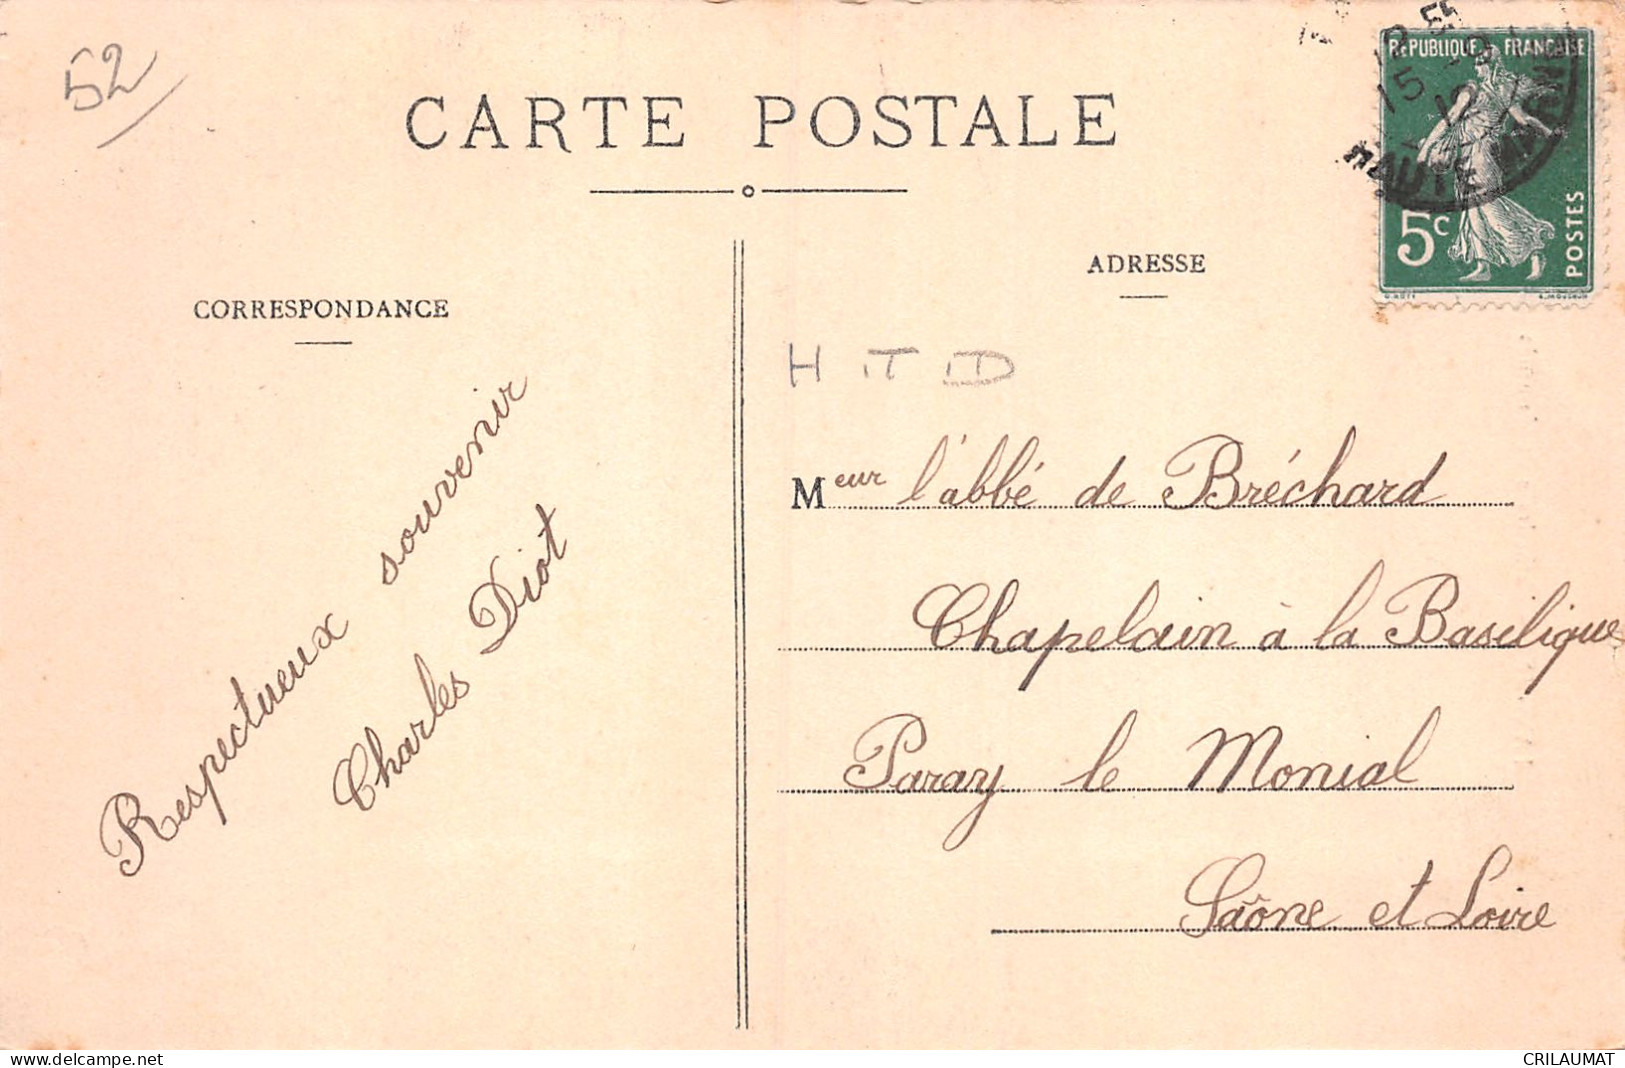 52
CARTE POSTALE
RÉPUBLIQUE FRANÇAISE
5c
POSTES
15
12
HAUTE MARNE
CORRESPONDANCE
Respectueux souvenir
Charles Diot
ADRESSE
Meur l'abbé de Bréchard
Chapelain à la Basilique
Paray le Monial
Saône et Loire
www.delcampe.net
CRILAUMAT